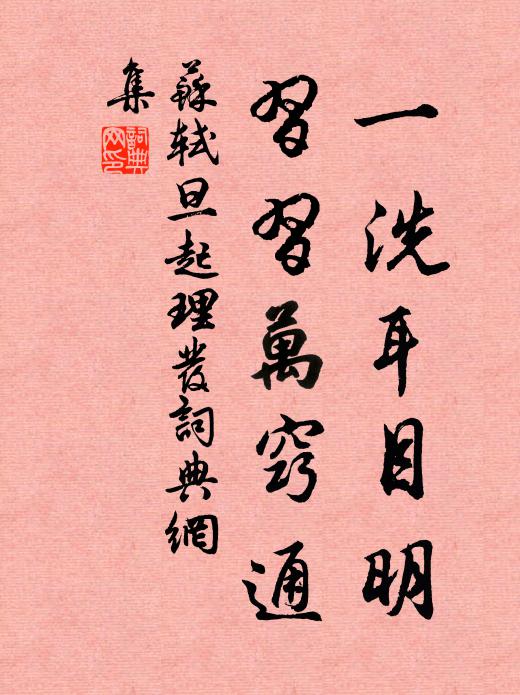 一洗耳目明
習習萬竅通
蘇軾旦起理發詞典網
集
詞典網印